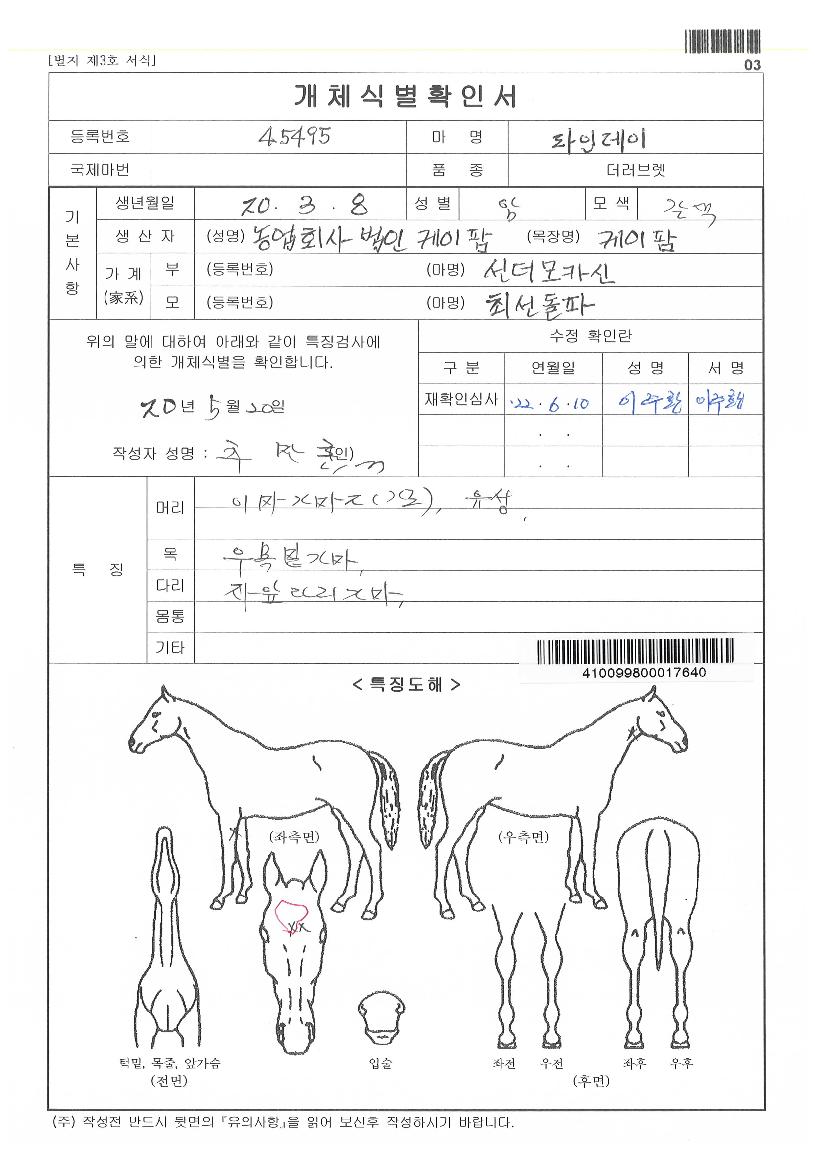 [별지 제3호 서식]
03
개체식별확인서
등록번호 45495 마 명 파인데이
국제마번 품 종 더러브렛
기본사항
생년월일 20. 3. 8 성 별 암 모 색 갈색
생 산 자 (성명) 농업회사법인 케이팜 (목장명) 케이팜
가 계 (家系)
부 (등록번호) (마명) 선더모카신
모 (등록번호) (마명) 최선돌파
위의 말에 대하여 아래와 같이 특징검사에
의한 개체식별을 확인합니다.
20년 5월 20일
작성자 성명 : (인)
수정 확인란
구 분 연월일 성 명 서 명
재확인심사 '22. 6. 10 이주환 이주환
. .
. .
특 징
머리 유성,
목 우목밑가마,
다리
몸통
기타
410099800017640
< 특징도해 >
(좌측면) (우측면)
턱밑, 목줄, 앞가슴 입술 좌전 우전 좌후 우후
(전면) (후면)
(주) 작성전 반드시 뒷면의 『유의사항』을 읽어 보신후 작성하시기 바랍니다.